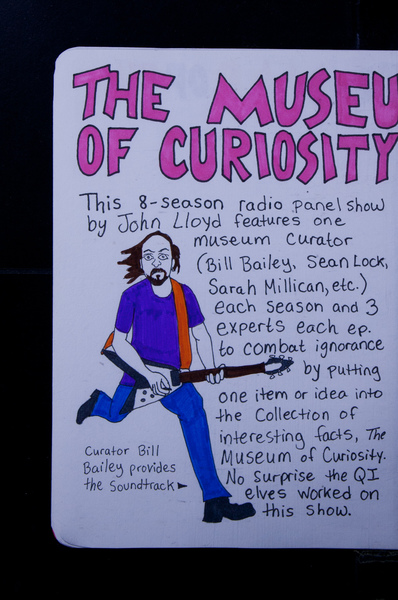 THE MUSEU
OF CURIOSITY
This 8-season radio panel show
by John Lloyd features one
museum curator
(Bill Bailey, Sean Lock,
Sarah Millican, etc.)
each season and 3
experts each ep.
to combat ignorance
by putting
one item or idea into
the Collection of
interesting facts, The
Museum of Curiosity.
No surprise the QI
elves worked on
this show.
Curator Bill
Bailey provides
the Soundtrack ►